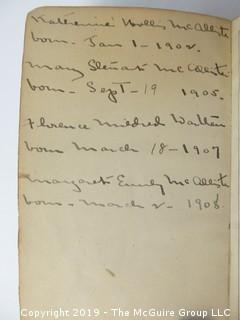 Katherine Hollis McAllister
born - Jan 1 - 1902.
Mary Stewart McAllister
born - Sept - 19 1905.
Florence Mildred Walten
born March 18 - 1907
Margaret Emily McAllister
born - March 2 - 1908.
Copyright 2019 - The McGuire Group LLC